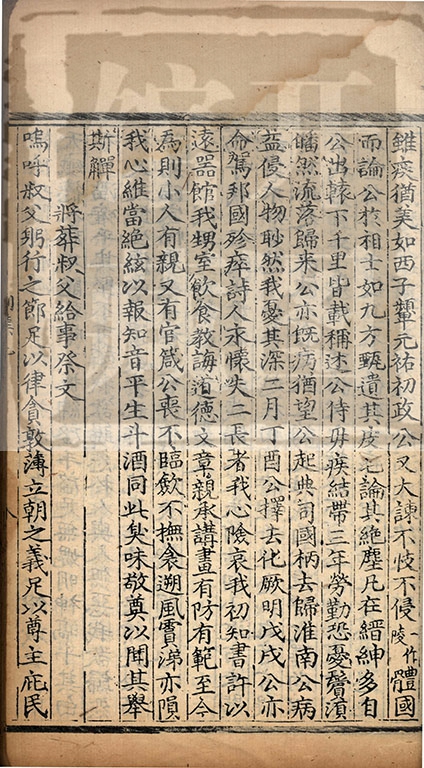 雖瘼猶美如西子顰元祐初政公又大諫不忮不侵一作陵體國
而論公於相士如九方甄遺其皮毛論其絶塵凡在縉紳多自
公出轅下千里皆載稱述公侍母疾結帶三年勞勤恐憂鬢須
皤然流落歸來公亦既病猶望公起典司國柄去歸淮南公病
益侵人物眇然我憂其深二月丁酉公擇去化厥明戊戌公亦
命駕邦國殄瘁詩人永懷失二長者我心隂哀我初知書許以
遠器館我甥室飲食教誨道德文章親承講畫有防有範至今
爲則小人有親又有官箴公喪不臨歛不撫衾遡風霣涕亦隕
我心維當絶絃以報知音平生斗酒同此臭味敬奠以聞其舉
斯觶
將葬叔父給事祭文
嗚呼叔父躬行之節足以律貪敦薄立朝之義足以尊主庇民